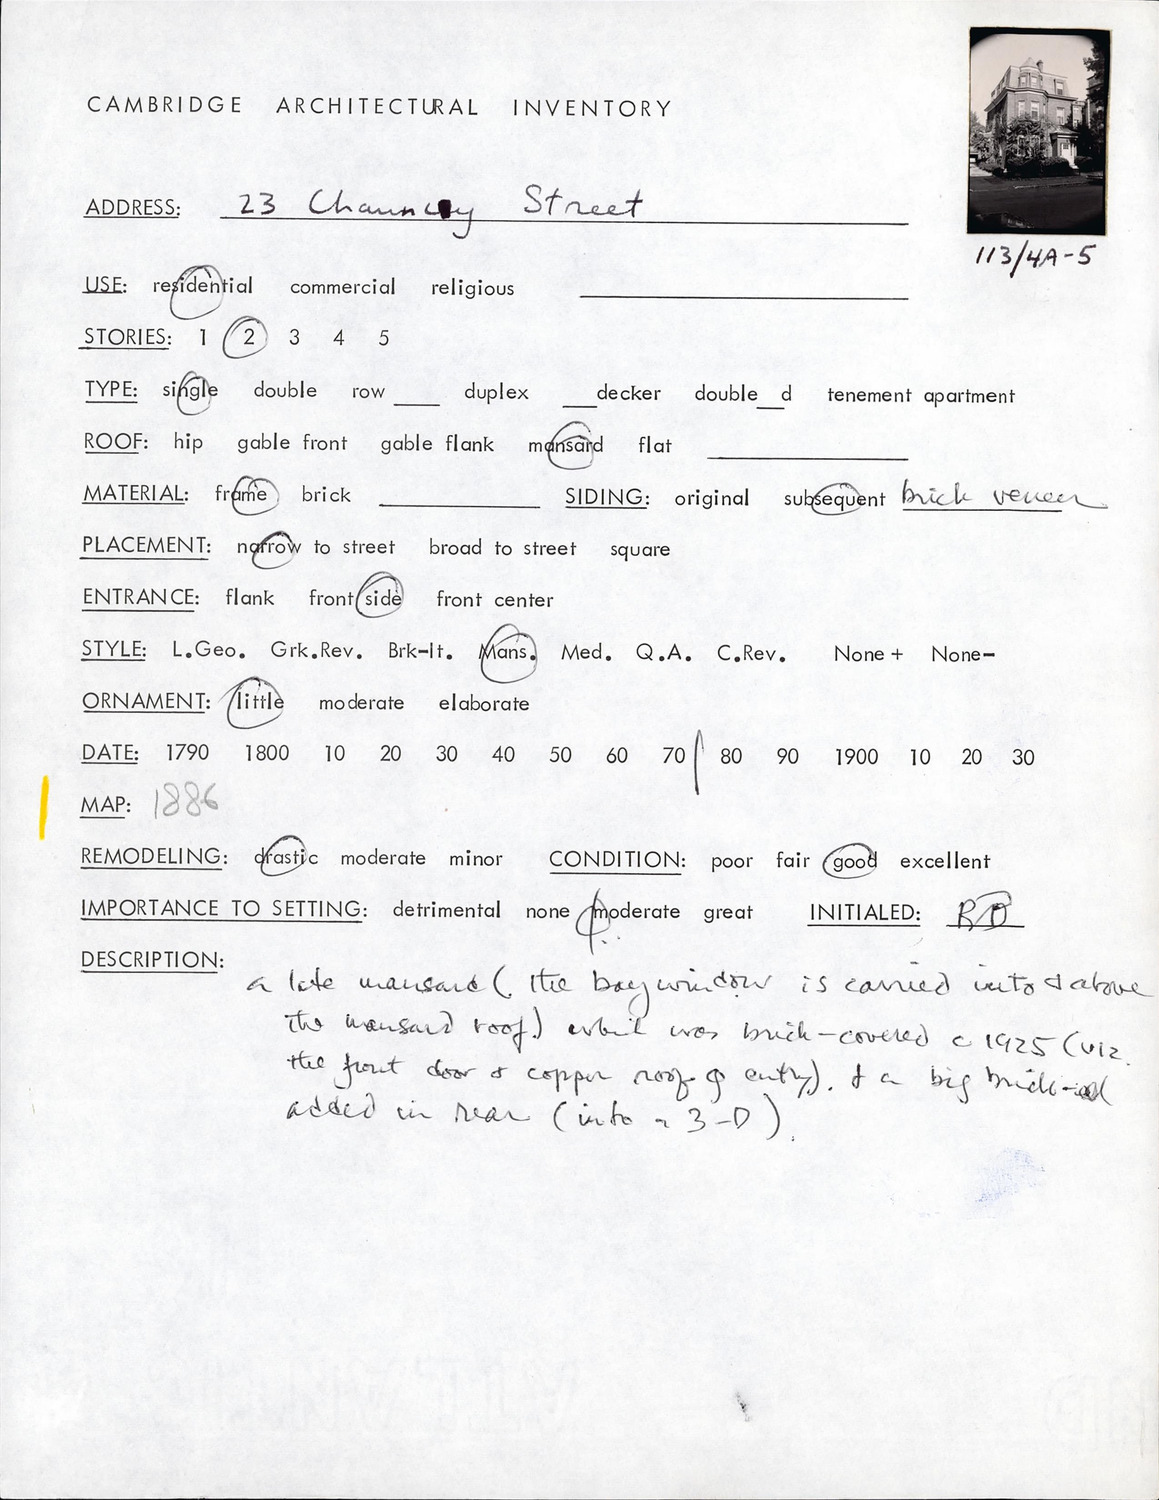 CAMBRIDGE ARCHITECTURAL INVENTORY
113/4A-5
ADDRESS: 23 Chauncy Street
USE: residential commercial religious
STORIES: 1 2 3 4 5
TYPE: single double row ___ duplex ___decker double__d tenement apartment
ROOF: hip gable front gable flank mansard flat
MATERIAL: frame brick SIDING: original subsequent brick veneer
PLACEMENT: narrow to street broad to street square
ENTRANCE: flank front side front center
STYLE: L.Geo. Grk.Rev. Brk-It. Mans. Med. Q.A. C.Rev. None+ None-
ORNAMENT: little moderate elaborate
DATE: 1790 1800 10 20 30 40 50 60 70 80 90 1900 10 20 30
MAP: 1886
REMODELING: drastic moderate minor CONDITION: poor fair good excellent
IMPORTANCE TO SETTING: detrimental none moderate great INITIALED:
DESCRIPTION:
a late mansard (the bay window is carried into & above
the mansard roof) which was brick-covered c 1925 (viz.
the front door & copper roof of entry). & a big brick
added in rear (into a 3-D).